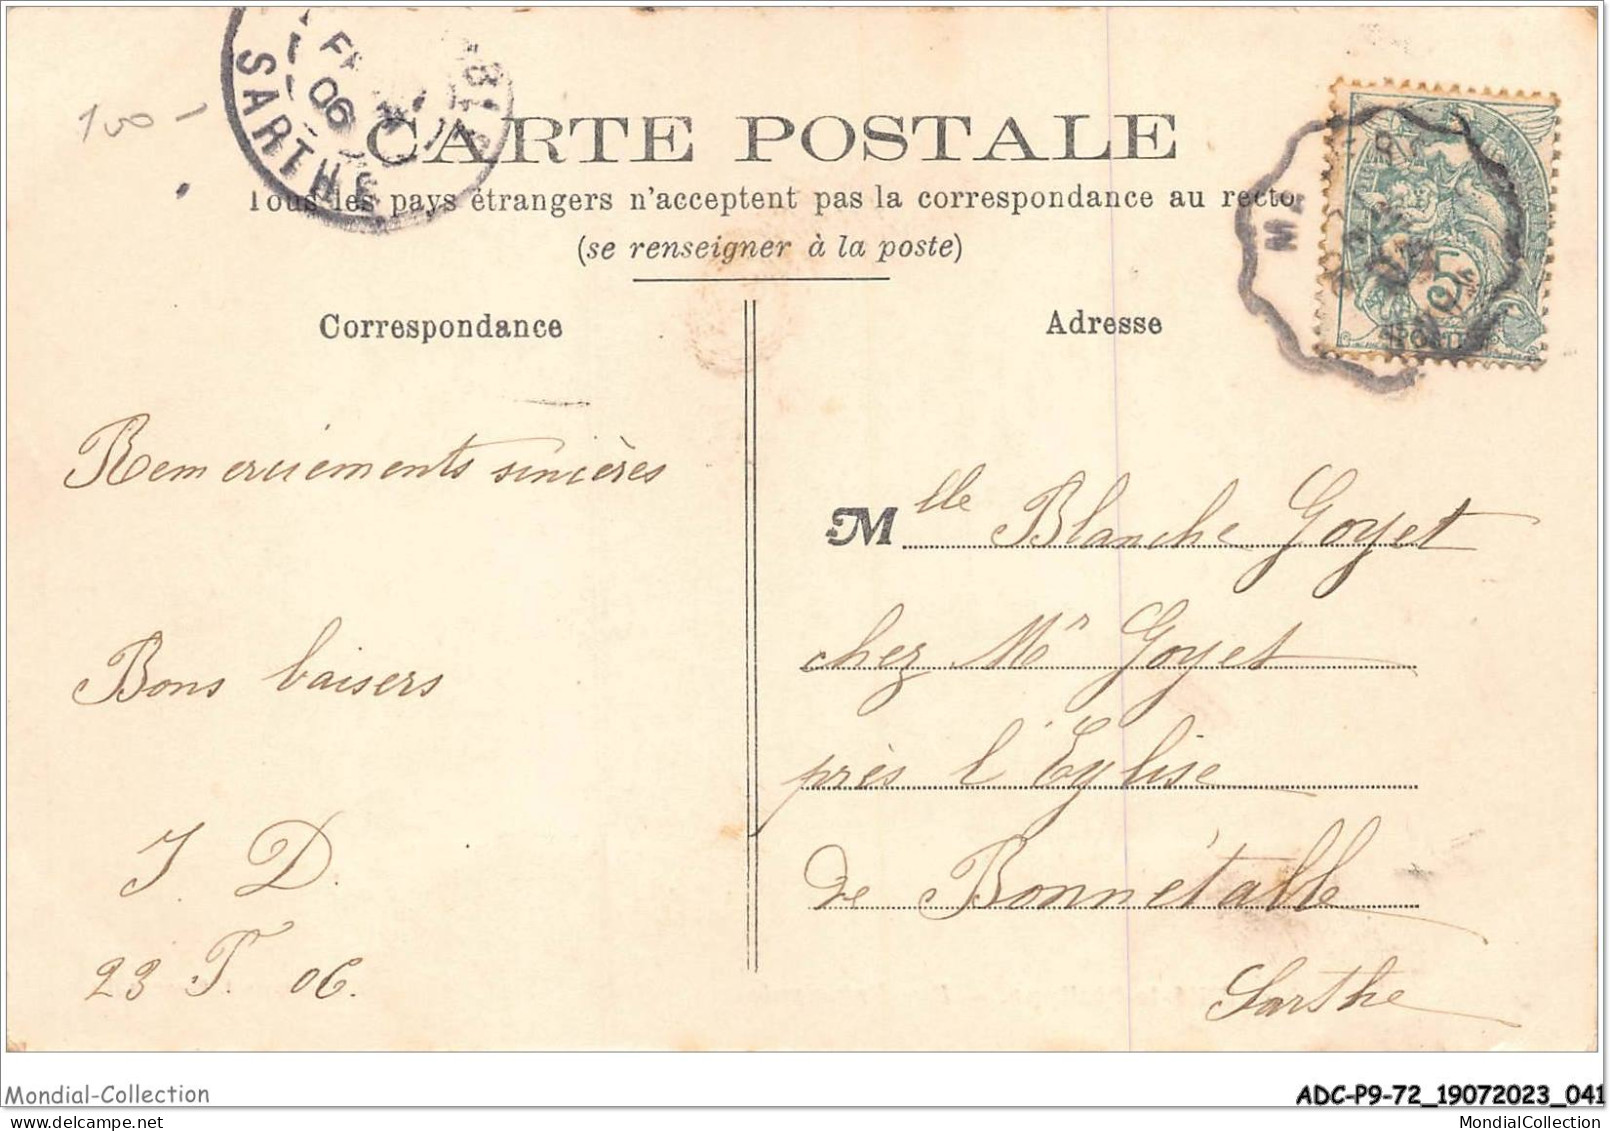 SARTHE
06
150 -
CARTE POSTALE
Tous les pays étrangers n'acceptent pas la correspondance au recto
(se renseigner à la poste)
MA
5
Correspondance
Adresse
Remerciements sincères
Bons baisers
J D.
23 F. 06.
Mlle Blanche Goyet
chez Mr Goyet
près l'Eglise
de Bonnétable
Sarthe
Mondial-Collection
ADC-P9-72_19072023_041
MondialCollection